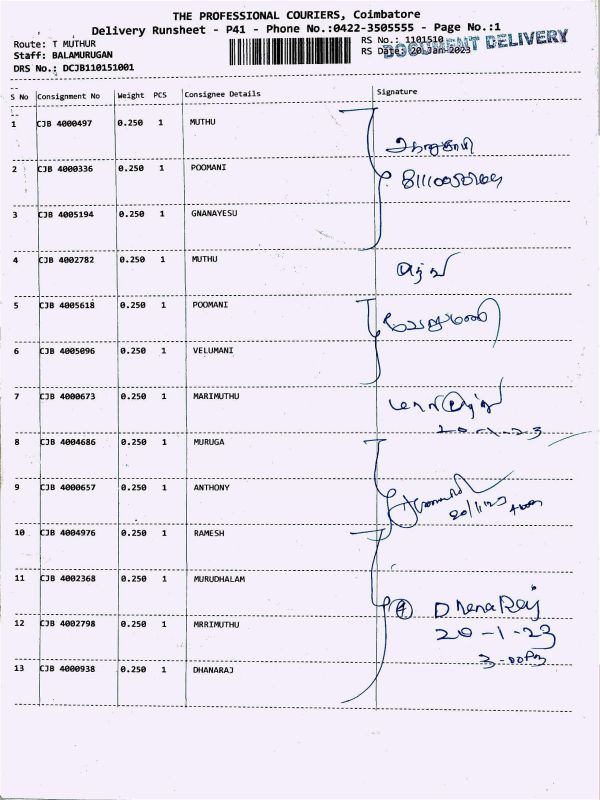 THE PROFESSIONAL COURIERS, Coimbatore
Delivery Runsheet - P41 - Phone No.:0422-3505555 - Page No.:1
Route: T MUTHUR
RS No.: 1101510
DOCUMENT DELIVERY
Staff: BALAMURUGAN
RS Date: 20-Jan-2023
DRS No.: DCJB110151001
S No Consignment No Weight PCS Consignee Details Signature
1 CJB 4000497 0.250 1 MUTHU
2 CJB 4000336 0.250 1 POOMANI
3 CJB 4005194 0.250 1 GNANAYESU
4 CJB 4002782 0.250 1 MUTHU
5 CJB 4005618 0.250 1 POOMANI
6 CJB 4005096 0.250 1 VELUMANI
வேலுமணி
7 CJB 4000673 0.250 1 MARIMUTHU
மாரிமுத்து
20-1-23
8 CJB 4004686 0.250 1 MURUGA
9 CJB 4000657 0.250 1 ANTHONY
20/1/23
10 CJB 4004976 0.250 1 RAMESH
11 CJB 4002368 0.250 1 MURUDHALAM
④ DhanaRaj
12 CJB 4002798 0.250 1 MRRIMUTHU
20-1-23
3-00PM
13 CJB 4000938 0.250 1 DHANARAJ